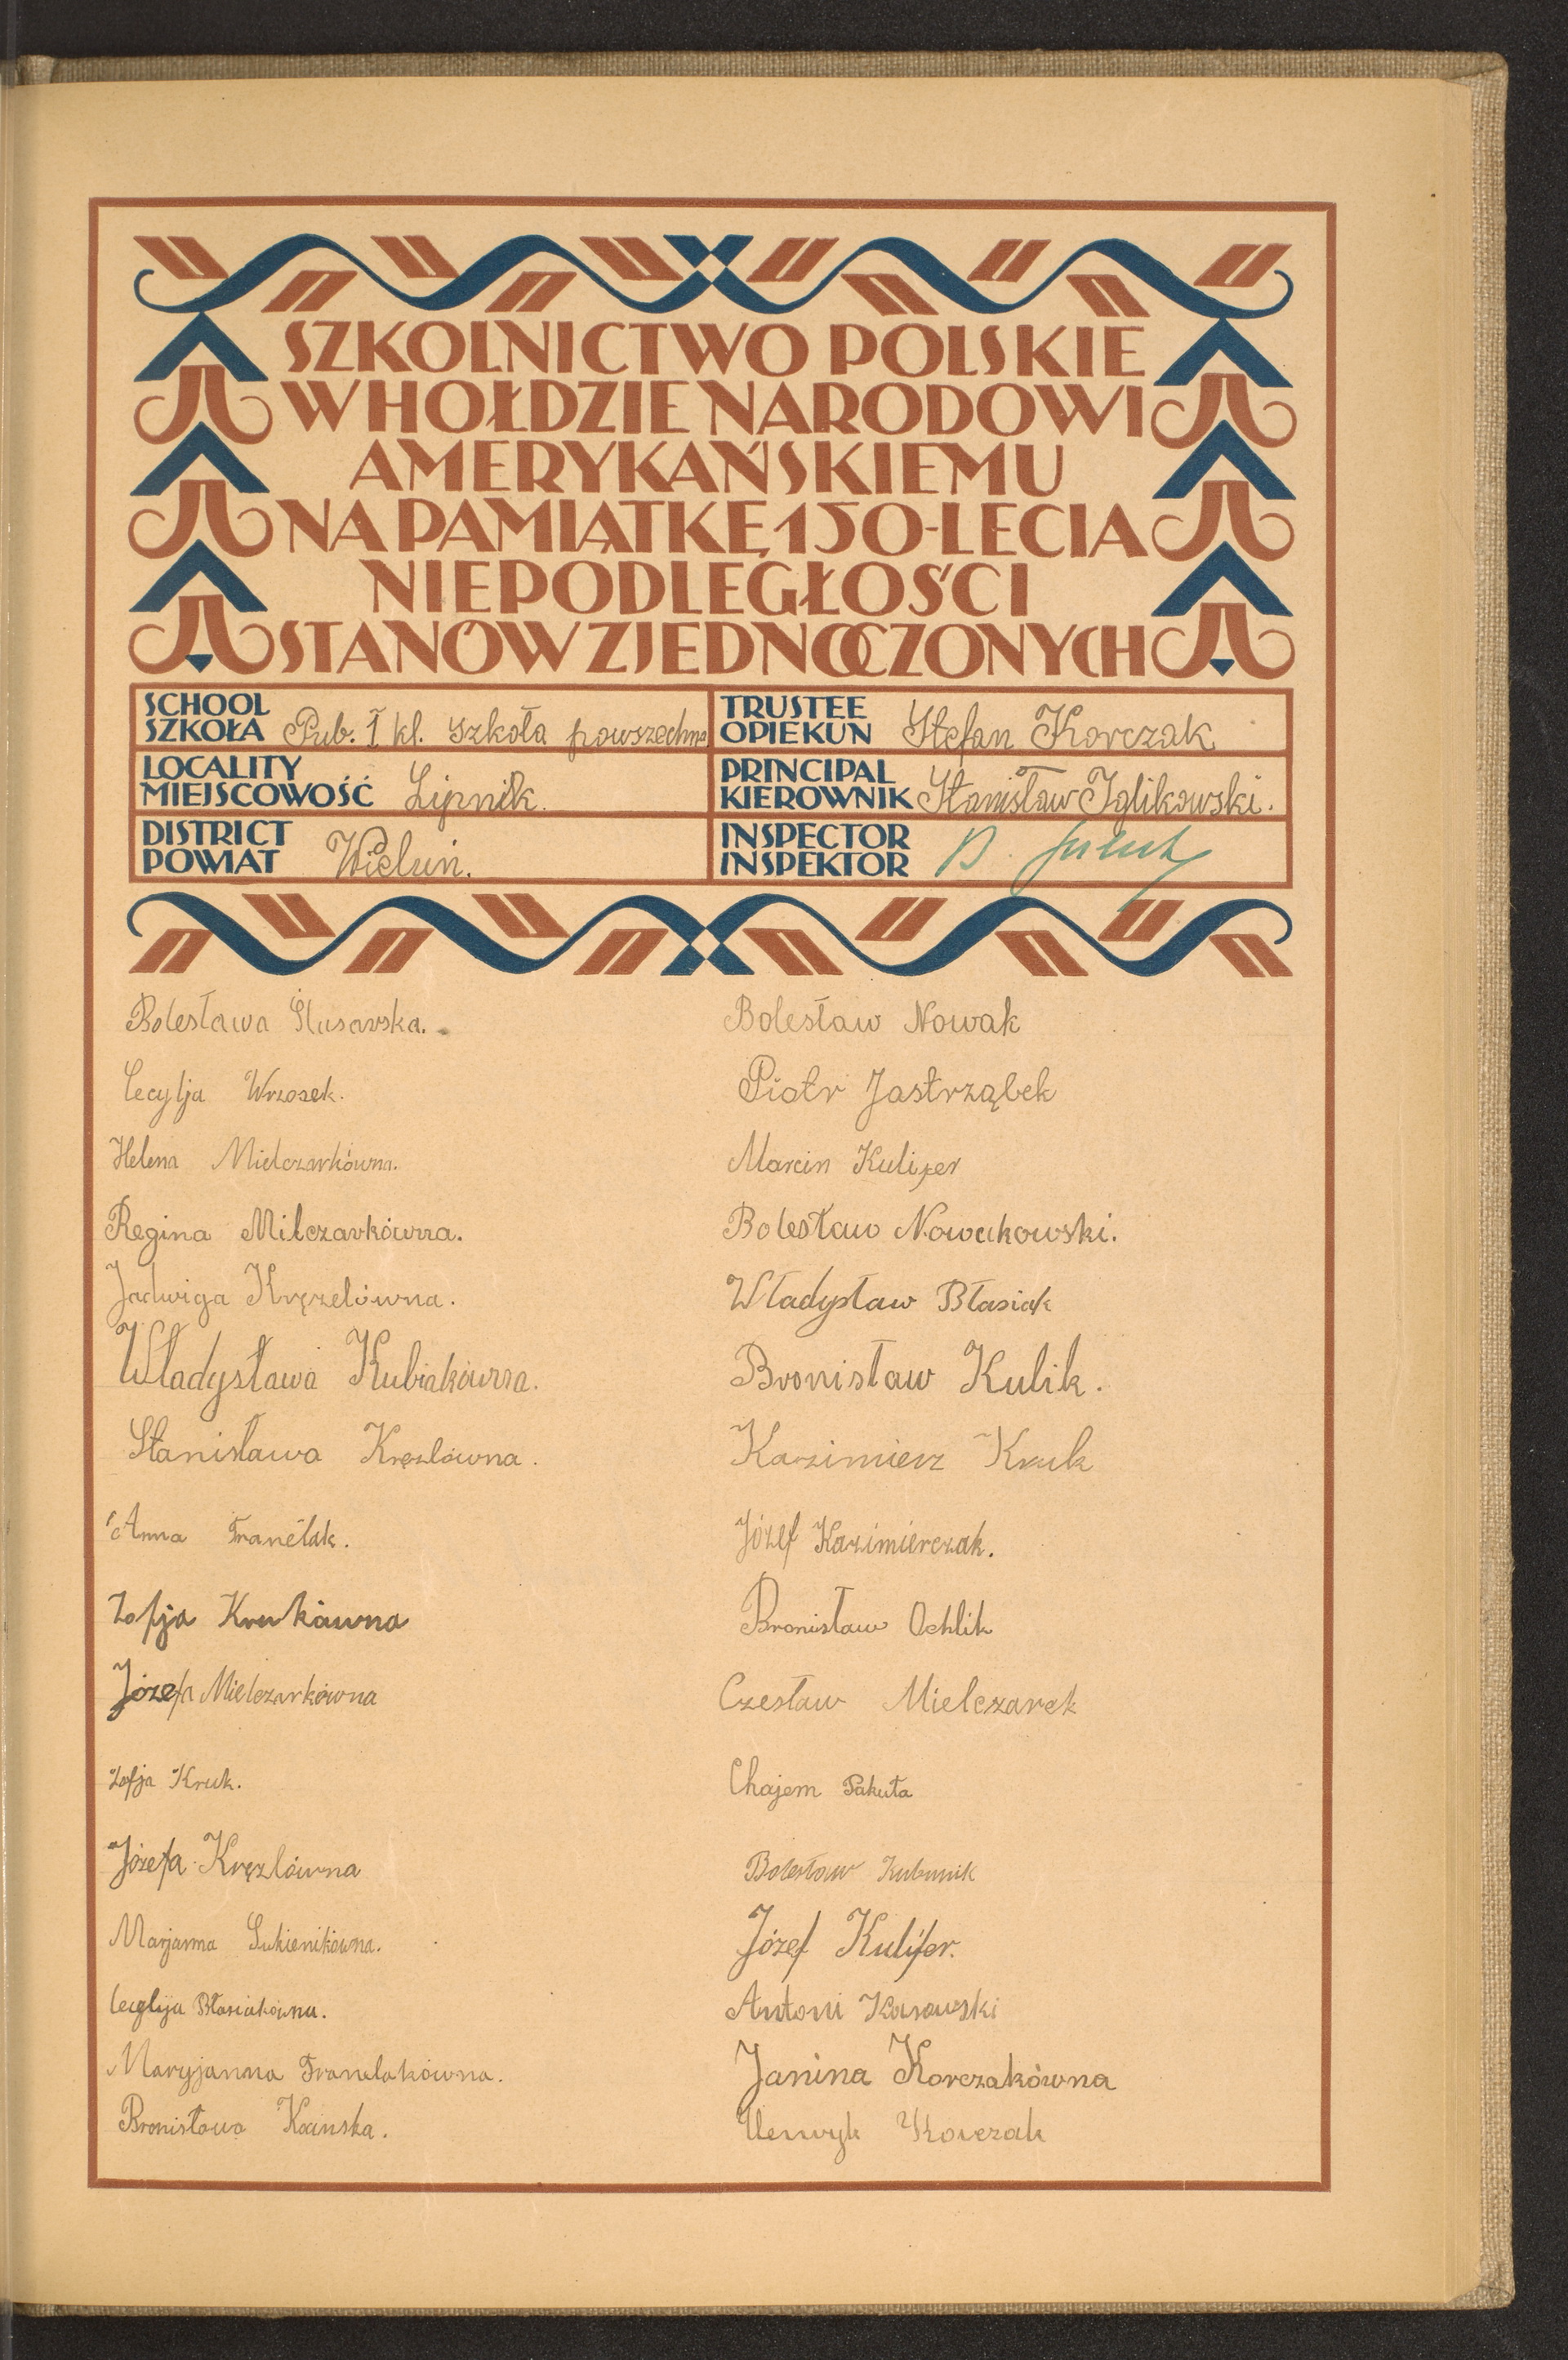 SZKOLNICTWO POLSKIE
W HOŁDZIE NARODOWI
AMERYKAŃSKIEMU
NA PAMIĄTKĘ 150-LECIA
NIEPODLEGŁOŚCI
STANÓW ZJEDNOCZONYCH
SCHOOL
SZKOŁA Pub. 1 kl. szkoła powszechna
TRUSTEE
OPIEKUN Stefan Korczak
LOCALITY
MIEJSCOWOŚĆ Lipnik.
PRINCIPAL
KIEROWNIK Stanisław Iglikowski.
DISTRICT
POWIAT Wieluń.
INSPECTOR
INSPEKTOR
Bolesława Ślusarska.
Cecylja Wrzosek.
Helena Mielczarkówna.
Regina Milczarkówna.
Jadwiga Kręzelówna.
Władysława Kubiakówna.
Stanisława Kręzlówna.
Anna Franelak.
Zofja Krukówna
Józefa Mielczarkówna
Zofja Kruk.
Józefa Kręzlówna
Marjanna Sukienikówna.
Cecylija Błasiakówna.
Maryjanna Franelakówna.
Bronisława
Bolesław Nowak
Piotr Jastrząbek
Marcin Kulifer
Bolesław Nowakowski.
Władysław Błasiak
Bronisław Kulik.
Kazimierz Kruk
Józef Kazimierczak.
Bronisław Ochlik
Czesław Mielczarek
Chajem Pakuła
Bolesław
Józef Kulifer.
Antoni Kasowski
Janina Korczakówna
Henryk Korczak